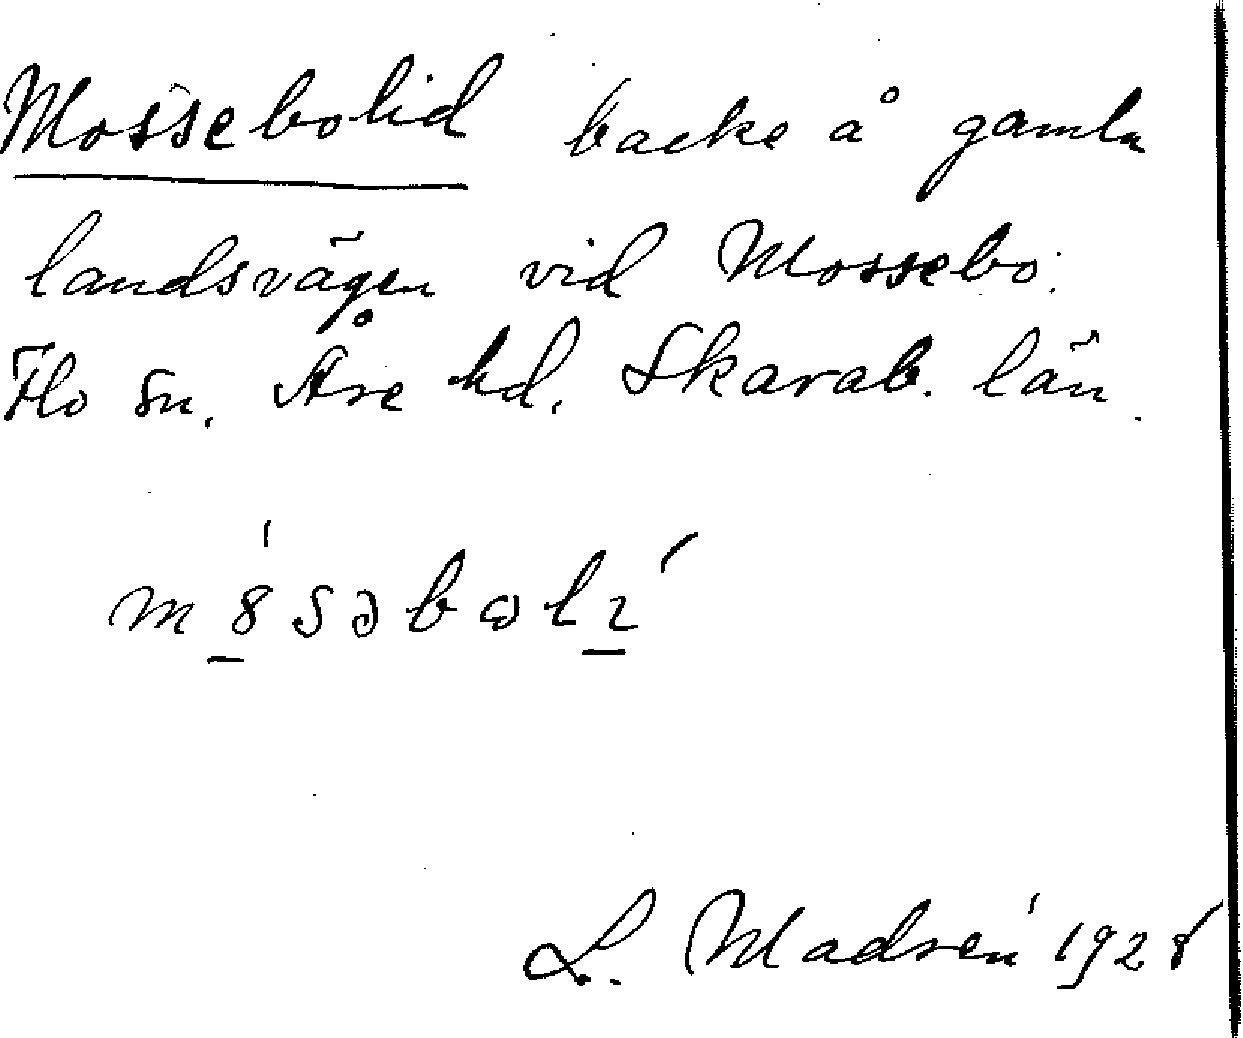 Mossebolid backe å gamla
landsvägen vid Mossebo.
Flo sn. Åre hd. Skarab. län.
L. Madrén 1928